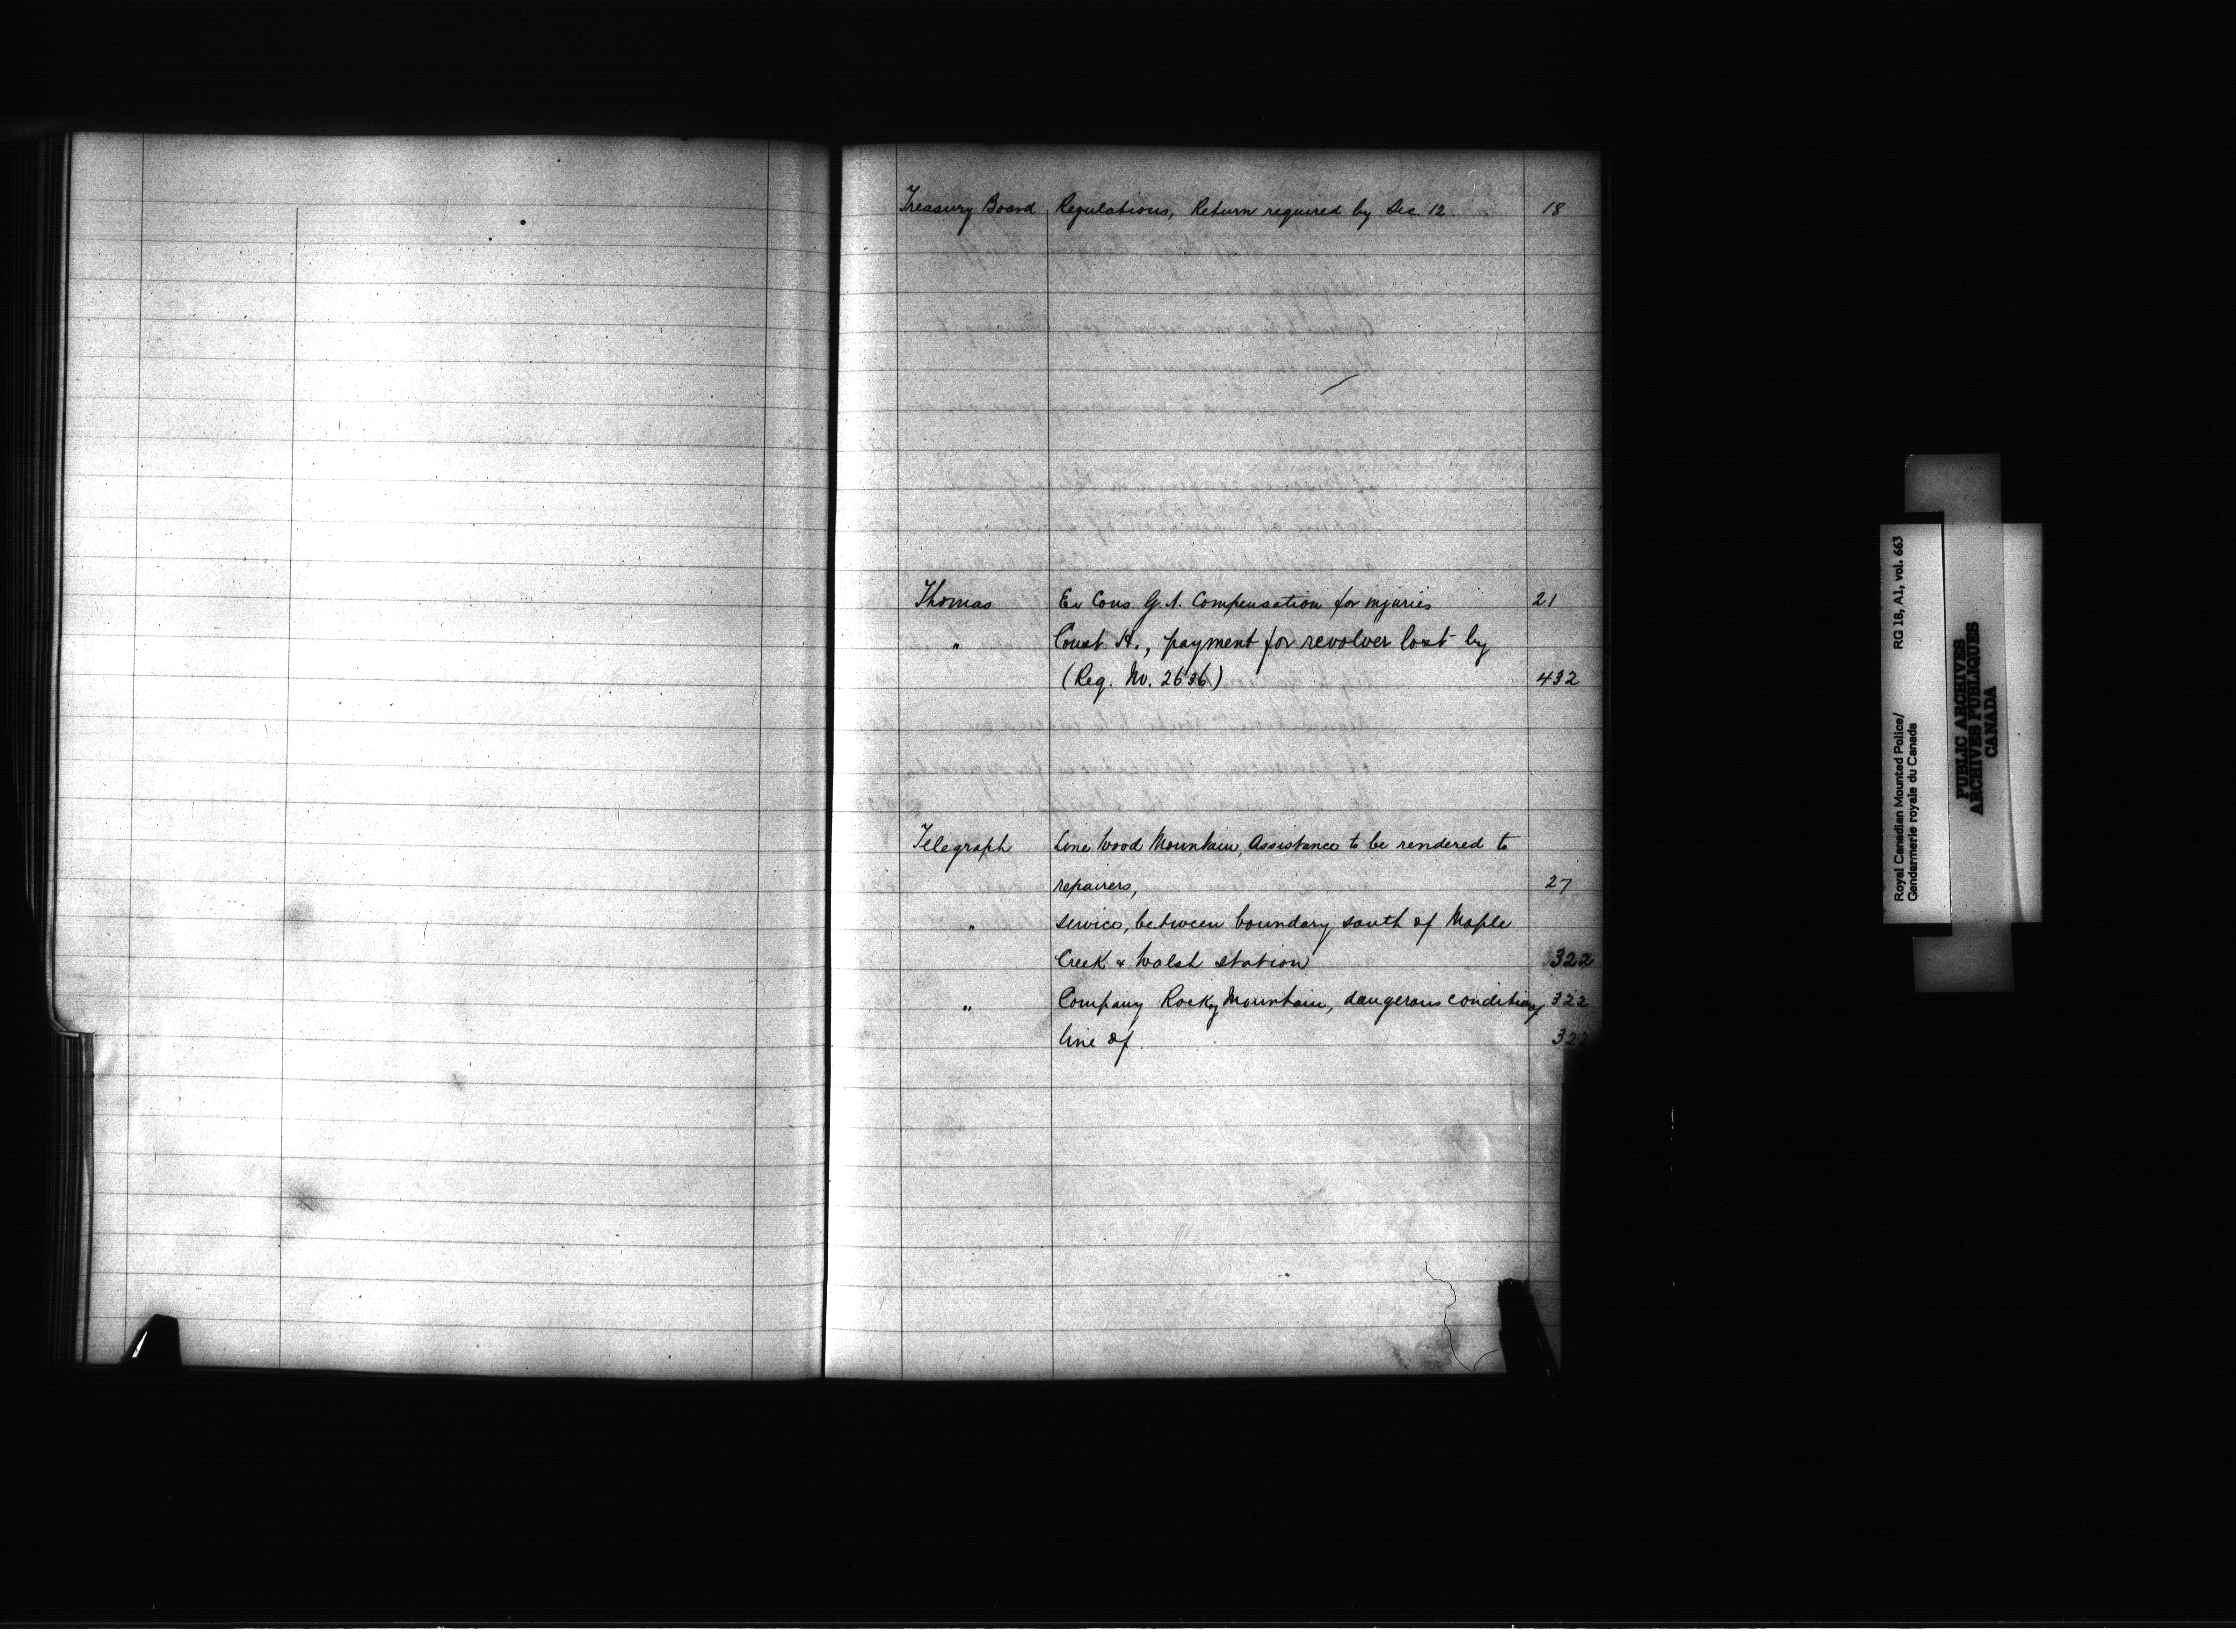 Treasury Board Regulations, Return required by Sec. 12. 18
Thomas Ex Cons. G.A. Compensation for injuries 21
" Const. H., payment for revolver lost by
(Reg. No. 2636) 432
Telegraph Line Wood Mountain, Assistance to be rendered to
repairers, 27
" service, between boundary south of Maple
Creek & Walsh station 322
" Company Rocky Mountain, dangerous condition of 322
line of. 322
Royal Canadian Mounted Police/ RG 18, A1, vol. 663
Gendarmerie royale du Canada
PUBLIC ARCHIVES
ARCHIVES PUBLIQUES
CANADA